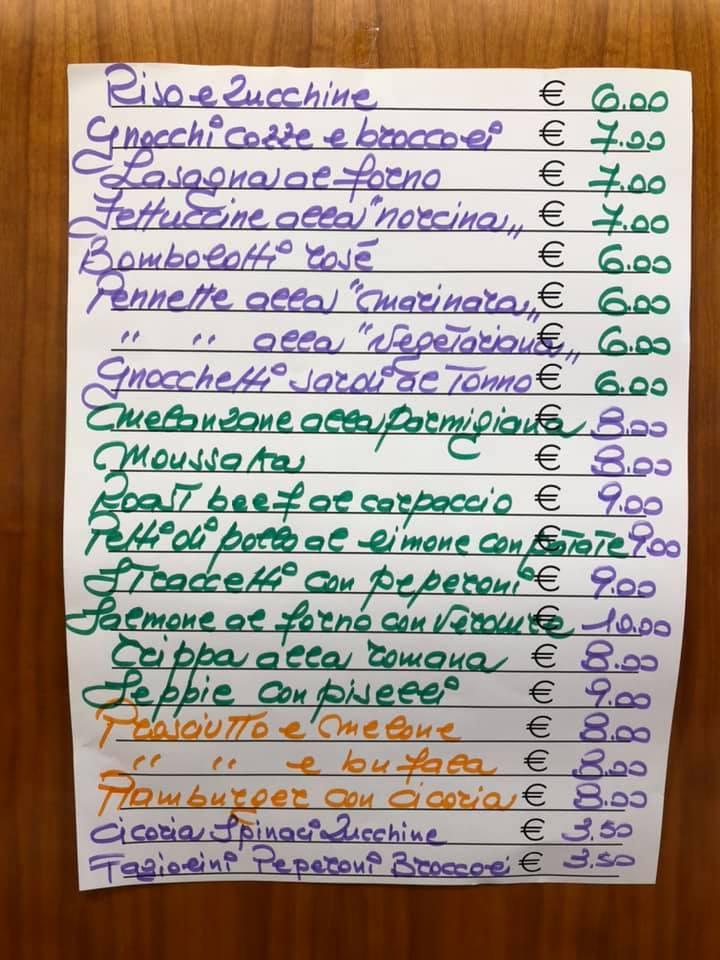 Riso e Zucchine € 6.00
Gnocchi cozze e broccoli € 7.00
Lasagna al forno € 7.00
Fettuccine alla "norcina„ € 7.00
Bombolotti rosé € 6.00
Pennette alla "marinara„ € 6.00
" " alla "vegetariana„ € 6.00
Gnocchetti sardi al Tonno € 6.00
Melanzane alla parmigiana € 8.00
Moussaka € 8.00
Roast beef al carpaccio € 9.00
Petti di pollo al limone con patate € 9.00
Straccetti con peperoni € 9.00
Salmone al forno con verdure € 10.00
Trippa alla romana € 8.00
Seppie con piselli € 9.00
Prosciutto e melone € 8.00
" " e bufala € 8.00
Hamburger con cicoria € 8.00
Cicoria Spinaci Zucchine € 3.50
Fagiolini Peperoni Broccoli € 3.50